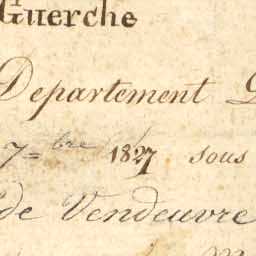 Guerche
Departement
7=bre 1827 sous
de Vendeuvre